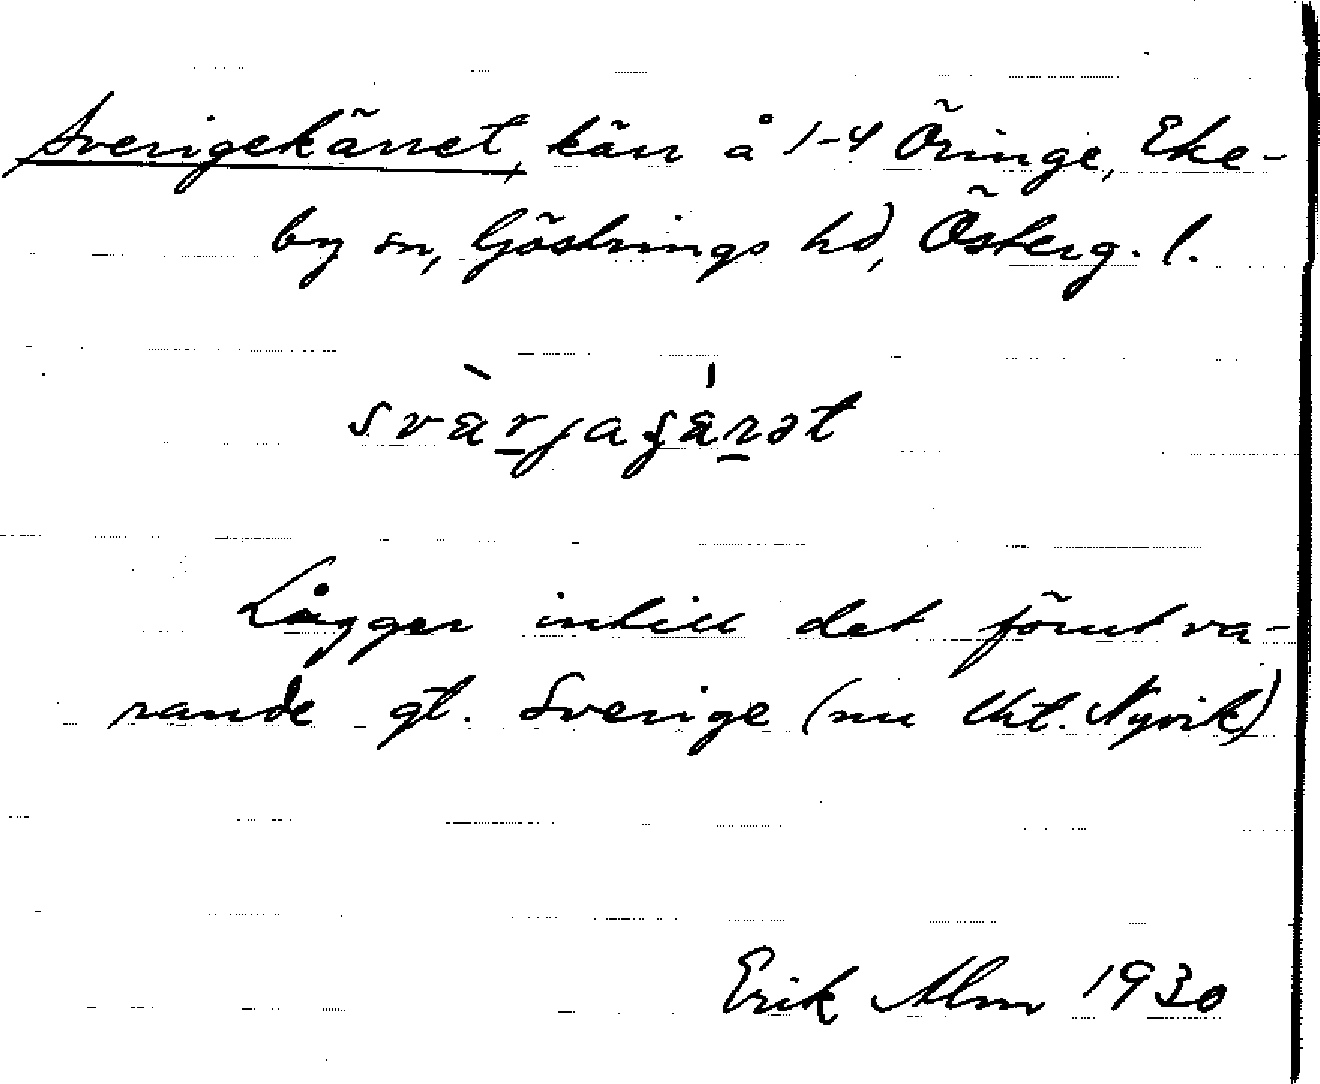 Sverigekärret, kärr å 1-4 Öringe, Eke-
by sn, Göstrings hd, Österg. l.
Lägger intill det förut va-
rande gt. Sverige (nu lht. Nyvik)
Erik Alm 1930